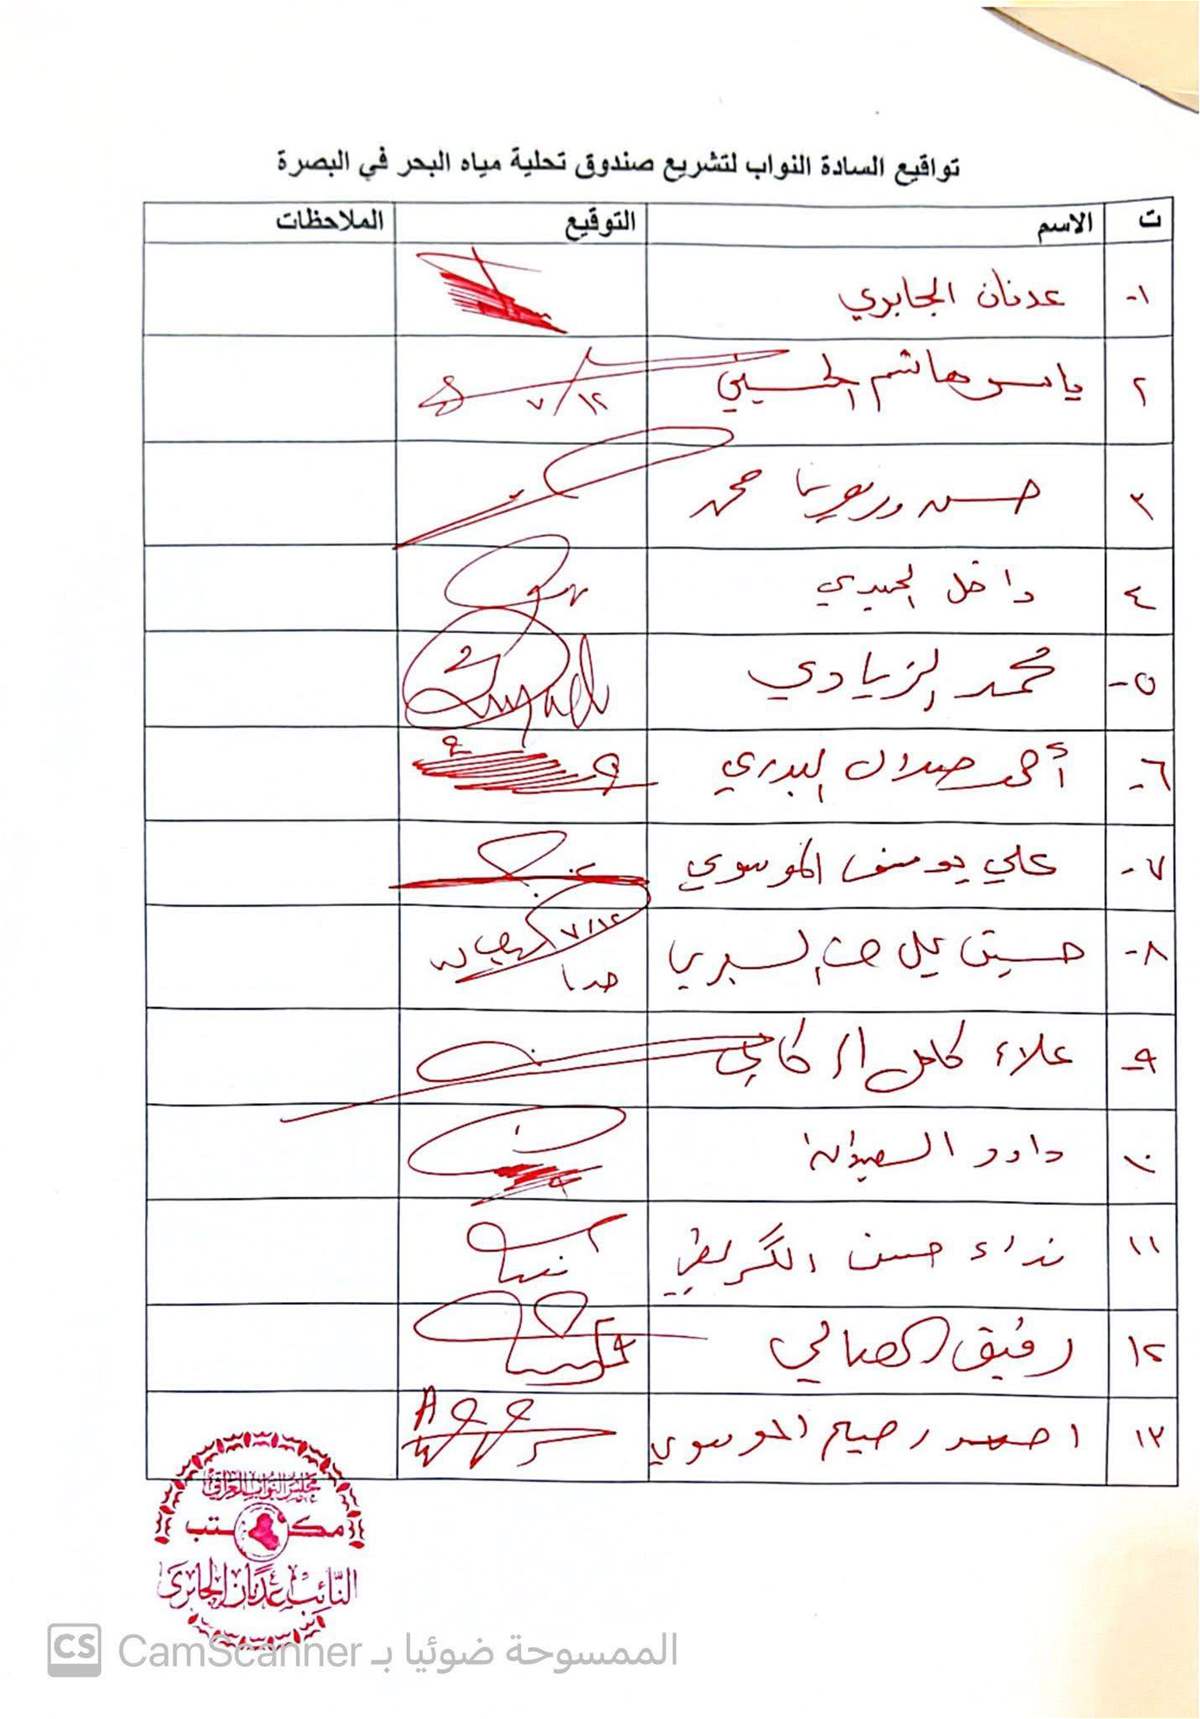 تواقيع السادة النواب لتشريع صندوق تحلية مياه البحر في البصرة
ت الاسم التوقيع الملاحظات
١- عدنان الجابري
٢ ياسر هاشم الحسيني ٧/١٢
٣ حسن وريوش محمد
٤ داخل
٥- محمد الزيادي
٦- أحمد صلال البدري
٧- علي يوسف الموسوي
٨- حسين علي ٧/١٢
٩- علاء كامل الركابي
١٠ داود
١١ نداء حسن الگريطي
١٢ رفيق الصالحي
١٣ الموسوي
مجلس النواب العراقي
مكتب
النائب عدنان الجابري
CS CamScanner الممسوحة ضوئيا بـ